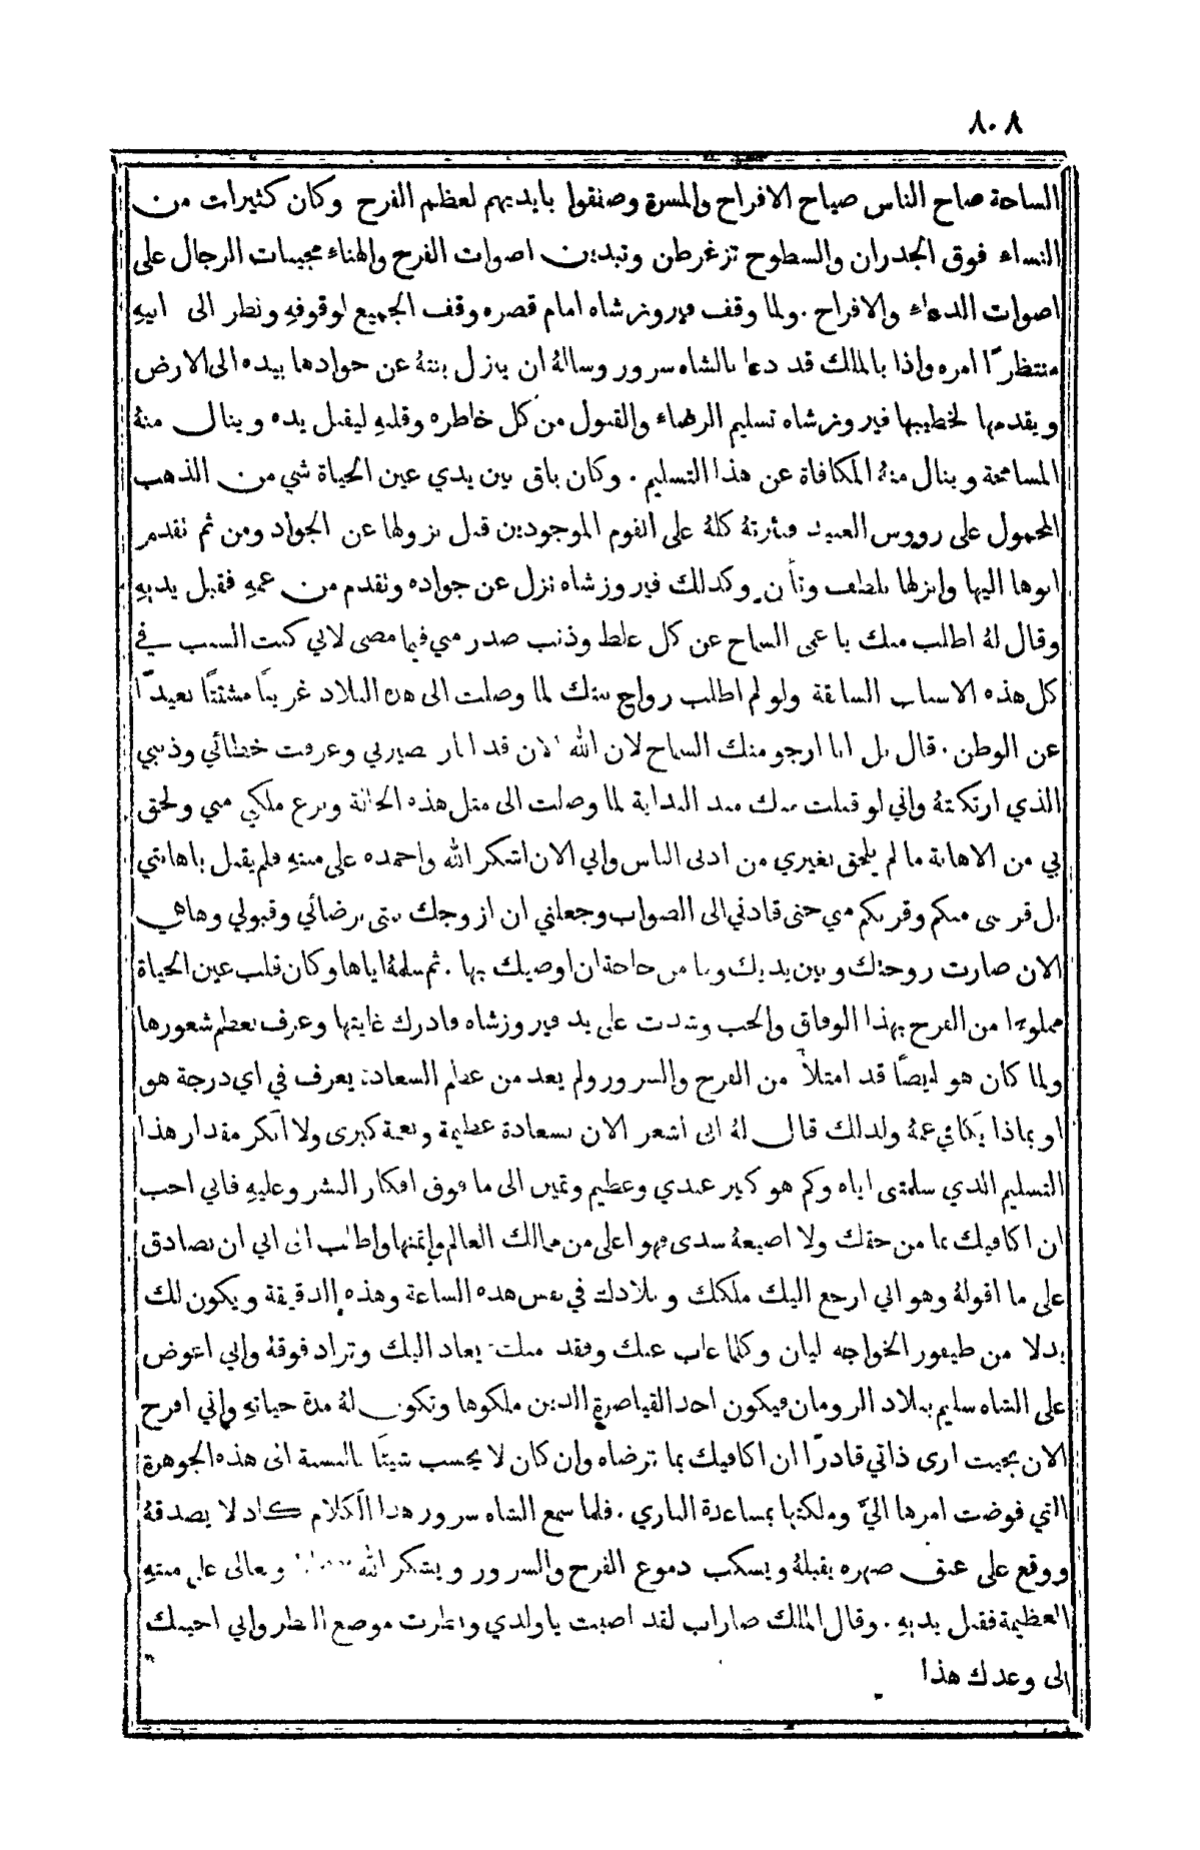 ٨٠٨
الساحة صاح الناس صياح الافراح والمسرة وصفقوا بايديهم لعظم الفرح وكان كثيرات من
النساء فوق الجدران والسطوح تزغرطن وتبدين اصوات الفرح والهناء مجيبات الرجال على
اصوات الدعاء والافراح . ولما وقف فيروزشاه امام قصره وقف الجميع لوقوفهِ ونظر الى ابيهِ
منتظرًا امره واذا بالملك قد دعا بالشاه سرور وسالهُ ان ينزل بنتهُ عن جوادها بيده الى الارض
ويقدمها لخطيبها فيروزشاه تسليم الرضاء والقبول من كل خاطره وقلبهِ ليقبل يده وينال منهُ
المسامحة وينال منهُ المكافاة عن هذا التسليم . وكان باقى بين يدي عين الحياة شي من الذهب
المحمول على رووس العبيد فنثرتهُ كلهُ على القوم الموجودين قبل نزولها عن الجواد ومن ثم تقدم
ابوها اليها وانزلها بلطف وتأنٍ وكذلك فيروزشاه نزل عن جواده وتقدم من عمهِ فقبل يديهِ
وقال لهُ اطلب منك يا عمي السماح عن كل غلط وذنب صدر مني فيما مضى لاني كنت السبب في
كل هذه الاسباب السابقة ولو لم اطلب زواج بنتك لما وصلت الى هذه البلاد غريبًا مشتتًا بعيدًا
عن الوطن . قال بل انا ارجو منك السماح لان الله الان قد انار بصيرتي وعرفت خطائي وذنبي
الذي ارتكبتهُ واني لو قبلت منك منذ البداية لما وصلت الى مثل هذه الحالة ونزع ملكي مني ولحق
بي من الاهانة ما لم يلحق بغيري من ادنى الناس واني الان اشكر الله واحمده على منهِ فلم يقبل باهانتي
بل قربني منكم وقربكم مني حتى قادني الى الصواب وجعلني ان ازوجك بنتي برضائي وقبولي وها هي
الان صارت زوجتك وبين يديك وما من حاجة ان اوصيك بها . ثم سلمهُ اياها وكان قلب عين الحياة
مملوءًا من الفرح بهذا الوفاق والحب وشدت على يد فيروزشاه فادرك غايتها وعرف بعظم شعورها
ولما كان هو ايضًا قد امتلأ من الفرح والسرور ولم يعد من عظم السعادة يعرف في اي درجة هو
او بماذا يكافي عمهُ ولذلك قال لهُ اني اشعر الان بسعادة عظيمة ونعمة كبرى ولا انكر مقدار هذا
التسليم الذي سلمتني اياه وكم هو كبير عندي وعظيم وثمين الى ما فوق افكار البشر وعليهِ فاني احب
ان اكافيك بما من حقك ولا اضيعهُ سدى فهو اعلى من ممالك العالم واثمنها واطلب الى ابي ان يصادق
على ما اقولهُ وهو اني ارجع اليك ملكك وبلادك في نفس هذه الساعة وهذه الدقيقة ويكون لك
بدلا من طيفور الخواجه ليان وكلما غاب عنك وفقد منك يعاد اليك وتزاد فوقهُ واني اعوض
على الشاه سليم ببلاد الرومان فيكون احد القياصرة الذين ملكوها وتكون لهُ مدة حياتهِ واني افرح
الان بحيث ارى ذاتي قادرًا ان اكافيك بما ترضاه وان كان لا يحسب شيئًا بالنسبة الى هذه الجوهرة
التي فوضت امرها اليَّ وملكتها بمساعدة الباري . فلما سمع الشاه سرور هذا الكلام كاد لا يصدقهُ
ووقع على عنق صهره يقبلهُ ويسكب دموع الفرح والسرور ويشكر الله وتعالى على منتهِ
العظيمة فقبل يديهِ . وقال الملك ضاراب لقد اصبت يا ولدي ونظرت موضع النظر واني اجيبك
الى وعدك هذا